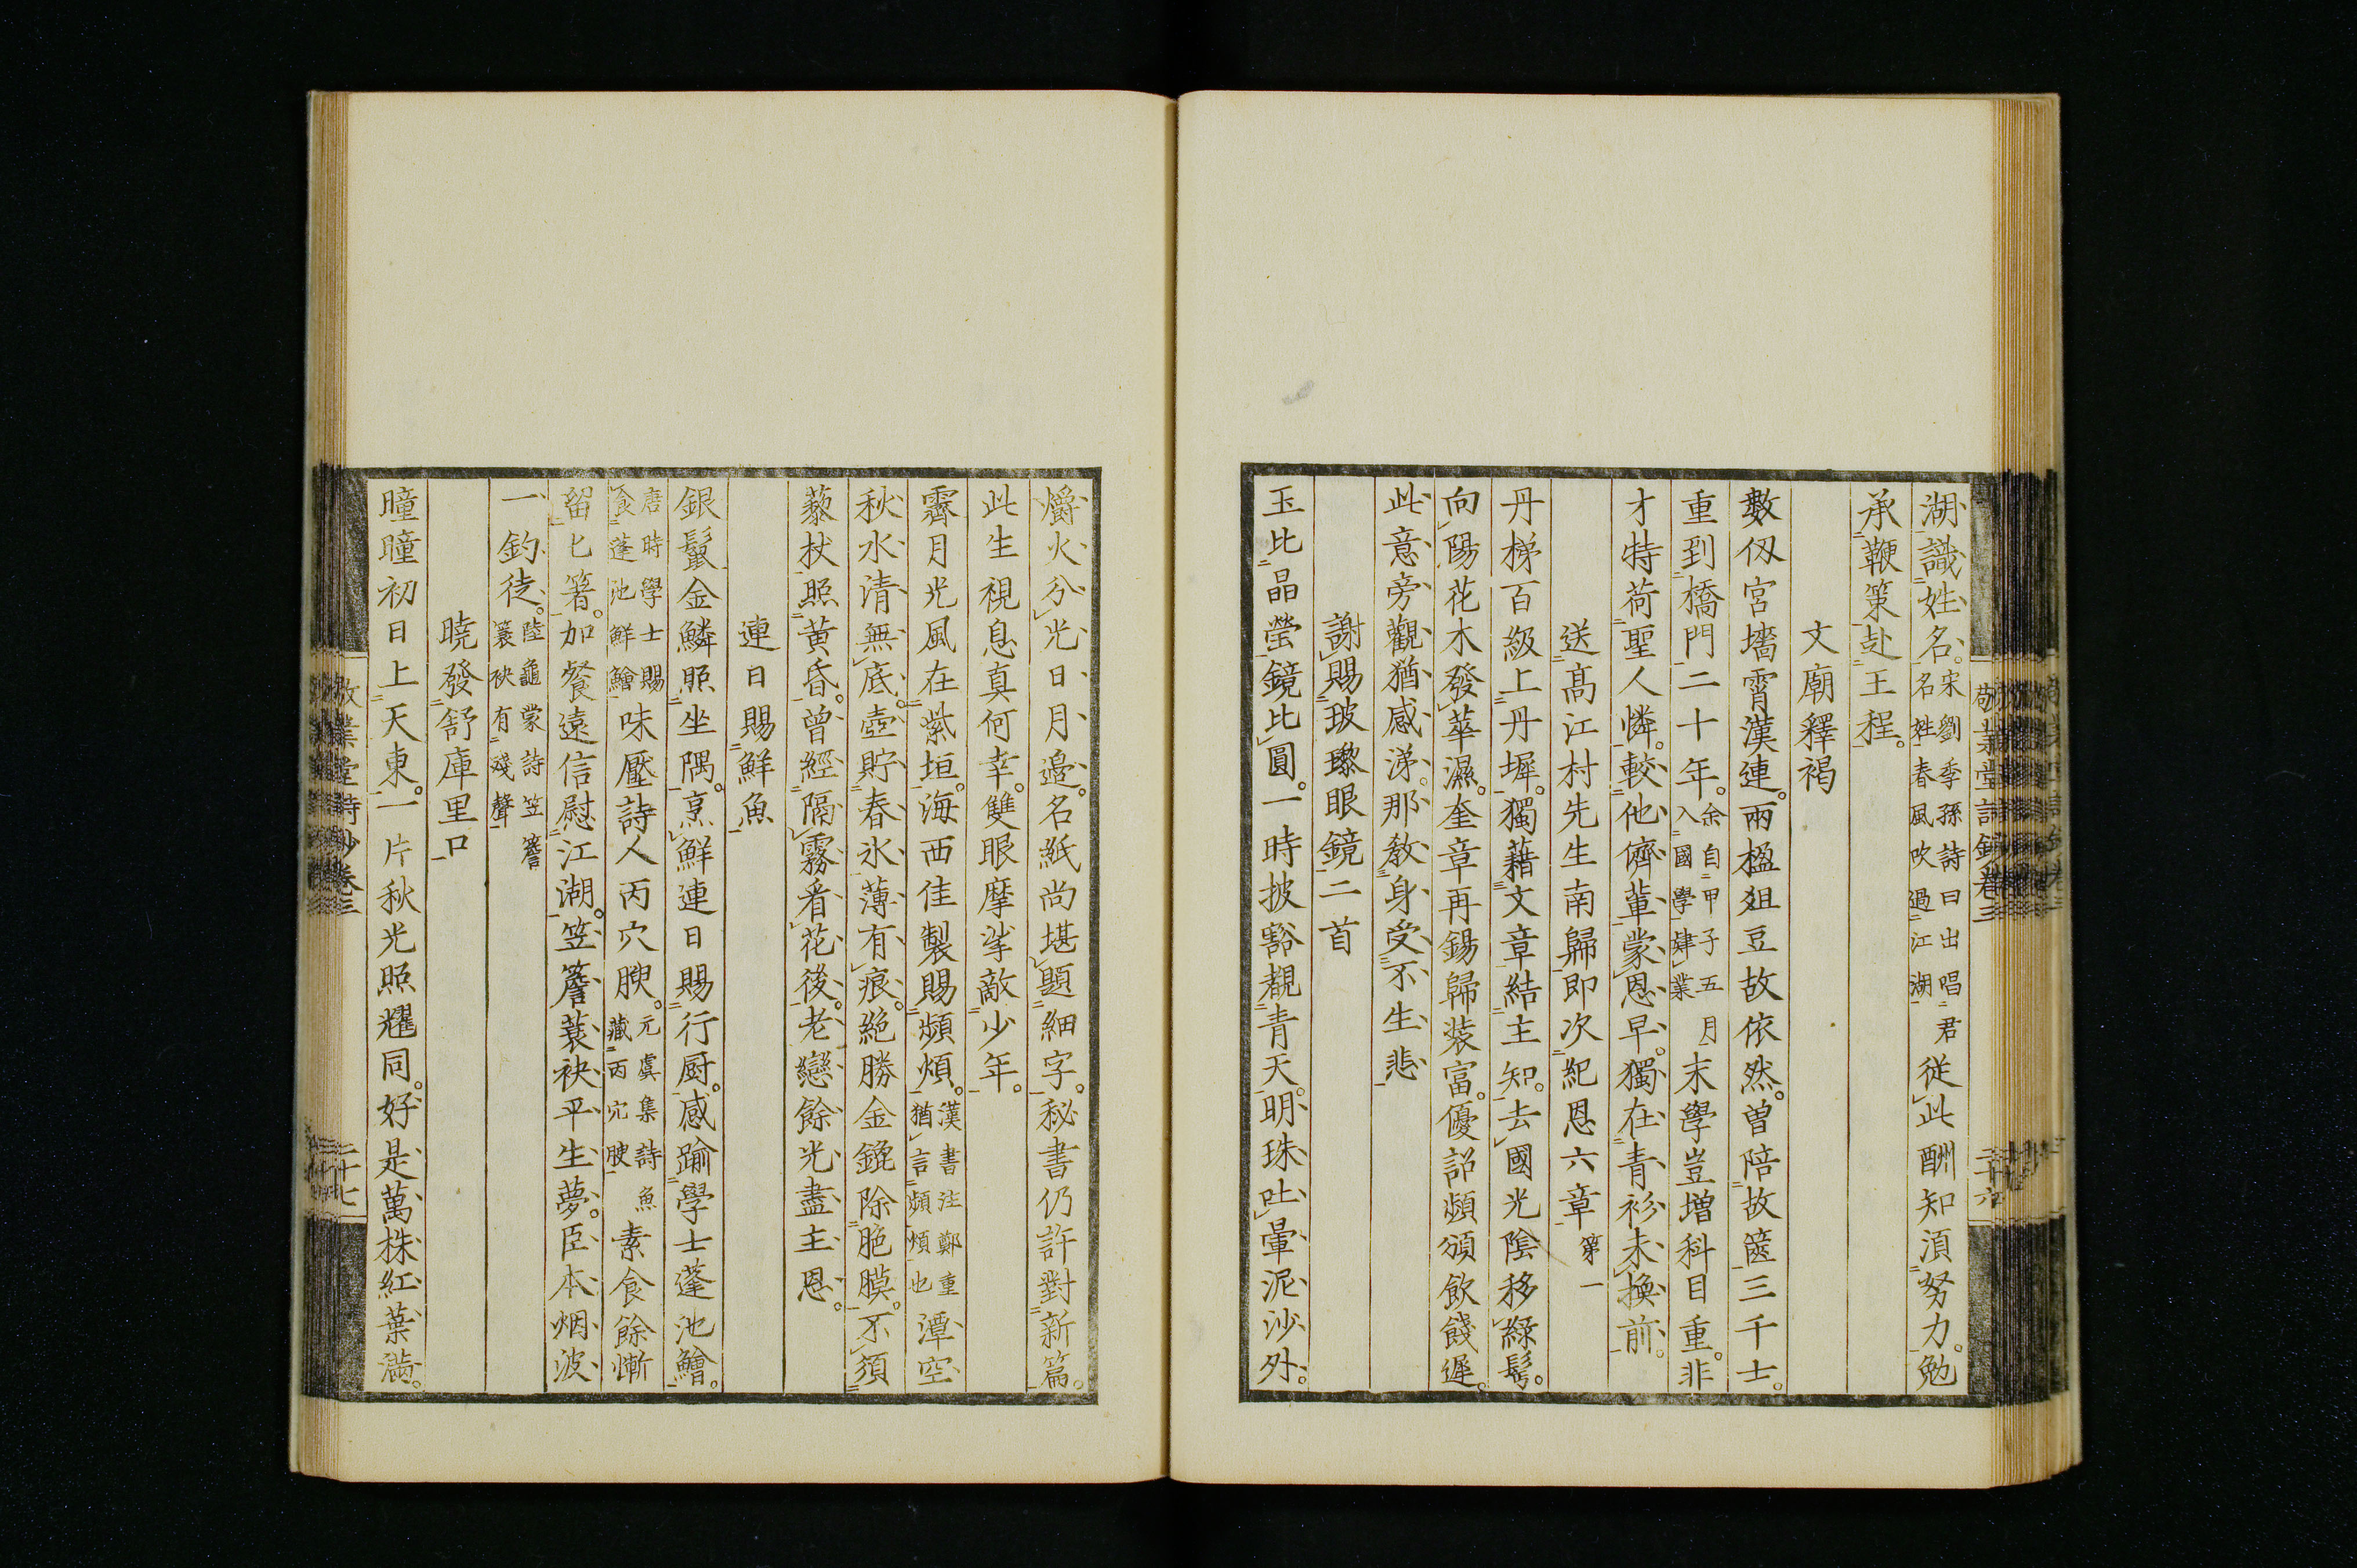 湖識姓名。宋劉季孫詩曰出唱君名姓春風吹過江湖從此酬知湏努力。勉
承鞭策赴王程。
文廟釋褐
數仭宮墻霄漢連。兩楹俎豆故依然。曾陪故篋三千士。
重到橋門二十年。余自甲子五月入國學肄業末學豈增科目重。非
才特荷聖人憐。較他儕輩蒙恩早。獨在青衫未換前。
送髙江村先生南歸即次紀恩六章第一
丹梯百級上丹墀。獨藉文章結主知。去國光陰移綠鬂。
向陽花木發華滋。奎章再錫歸装富。優詔頻頒飲餞遲。
此意旁觀猶感涕。那教身受不生悲
謝賜玻瓈眼鏡二首
玉比晶瑩鏡比圓。一時披豁覩青天。明珠吐暈泥沙外。
爝火分光日月邊。名紙尚堪題細字。秘書仍許對新篇。
此生視息真何幸。雙眼摩挲敵少年。
霽月光風在紫垣。海西佳製賜頻煩。漢書注鄭重猶言頻煩也潭空
秋水清無底。壺貯春氷薄有痕。絶勝金鎞除脃膜。不須
藜杖照黄昏。曾經隔霧看花後。老戀餘光盡主恩。
連日賜鮮魚
銀鬛金鱗照坐隅。烹鮮連日賜行厨。感踰學士蓬池鱠。
唐時學士賜食蓬池鮮鱠味壓詩人丙穴腴。元虞集詩魚藏丙穴腴素食餘慚
留匕箸。加餐遠信慰江湖。笠簷蓑袂平生夢。臣本烟波
一釣徒。陸龜蒙詩笠簷蓑袂有殘聲
曉發舒庫里口
曈曈初日上天東。一片秋光照耀同。好是萬株紅葉满。
敬業堂詩鈔卷三
二十六
敬業堂詩鈔卷三
二十七